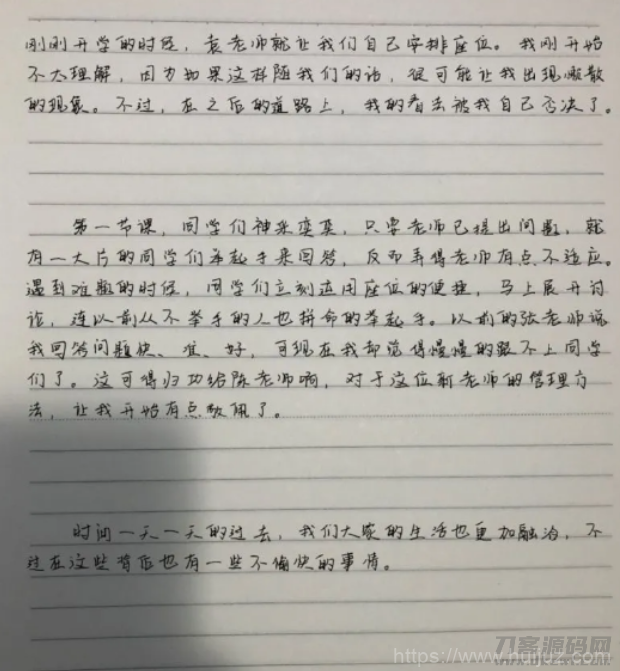 刚刚开学的时候，袁老师就让我们自己安排座位。我刚开始
不太理解，因为如果这样随我们的话，很可能让我出现懒散
的现象。不过，在之后的道路上，我的看法被我自己否决了。
第一节课，同学们神采奕奕，只要老师已提出问题，就
有一大片的同学们举起手来回答，反而弄得老师有点不适应。
遇到难题的时候，同学们立刻运用座位的便捷，马上展开讨
论，连以前从不举手的人也拼命的举起手。以前的张老师说
我回答问题快、准、好，可现在我却觉得慢慢的跟不上同学
们了。这可得归功给陈老师啊，对于这位新老师的管理方
法，让我开始有点敬佩了。
时间一天一天的过去，我们大家的生活也更加融洽，不
过在这些背后也有一些不愉快的事情。
刀客源码网